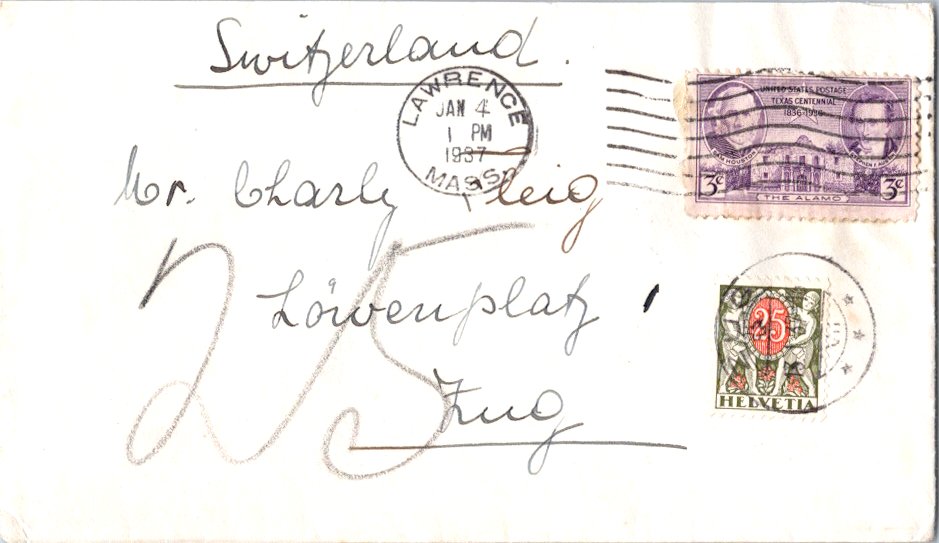 Switzerland.
LAWRENCE
JAN 4
1 PM
1937
MASS.
UNITED STATES POSTAGE
TEXAS CENTENNIAL
1836-1936
SAM HOUSTON
STEPHEN F. AUSTIN
3¢ 3¢
THE ALAMO
Mr. Charly
Löwenplatz 1
Zug
25
25
HELVETIA